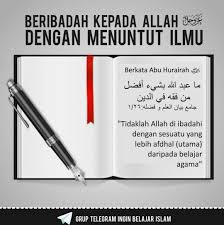 BERIBADAH KEPADA ALLAH عَزَّ وَجَلَّ
DENGAN MENUNTUT ILMU
Berkata Abu Hurairah
ما عبد الله بشيء أفضل
من فقه في الدين
جامع بيان العلم و فضله: ١/٢٦
"Tidaklah Allah di ibadahi
dengan sesuatu yang
lebih afdhal (utama)
daripada belajar
agama"
GRUP TELEGRAM INGIN BELAJAR ISLAM